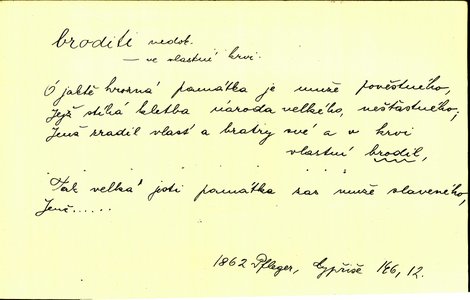 broditi nedok.
— ve vlastní krvi.
Ó jaktě hrozná památka je muže pověstného,
Jejž stíhá kletba národa velkého, nešťastného;
Jenž zradil vlast a bratry své a v krvi
vlastní brodil,
. . . . . . . . . .
Tak velká jesti památka zas muže slaveného,
Jenž.....
1862 Pfleger, Cypřiše 12.